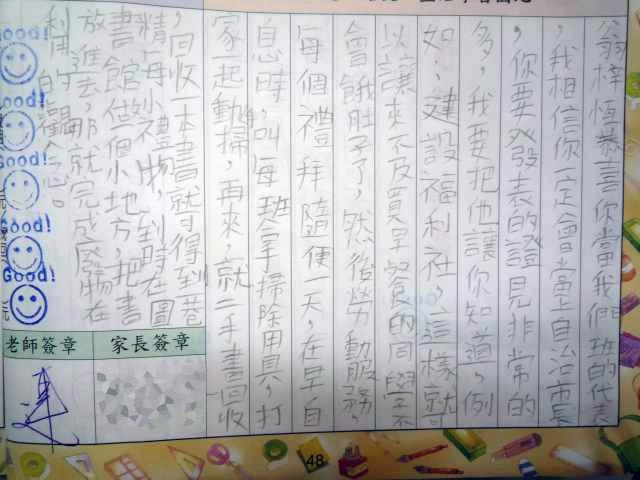 翁梓恆恭喜你當我們班的代表
，我相信你一定會當上自治市長
，你要發表的證見非常的
多，我要把他讓你知道，例
如：建設福利社，這樣就可
以讓來不及買早餐的同學不
會餓肚子了，然後勞動服務，
每個禮拜隨便一天，在早自
息時，叫每班拿掃除用具，打
家一起動掃，再來，就二手書回收
，回收一本書就可得到一卷
精每小禮物，到時在圖
書館做一個小地方，把書
放進去，那就完成廢物在
利用的
心。
Good!
Good!
Good!
Good!
Good!
老師簽章
家長簽章
48